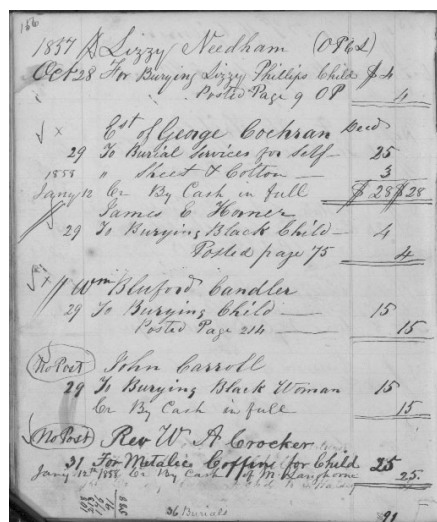 166
1857 Lizzy Needham (OP&L)
Oct 28 For Burying Lizzy Phillips Child $4
Posted Page 9 OP 4
x Est of George Cochran Decd
29 To Burial Services for Self 25
" Sheet & Cotton 3
1858 Jany 12 Cr By Cash in full $28 $28
James E Horner
29 To Burying Black Child 4
Posted page 75 4
x Wm Bluford Candler
29 To Burying Child 15
Posted Page 214 15
No Post John Carroll
29 To Burying Black Woman 15
Cr By Cash in full 15
No Post Rev W. A Crocker
31 For Metalic Coffin for Child 25
Jany 12th 1858 Cr By Cash of M Langhorne 25.
36 Burials
91